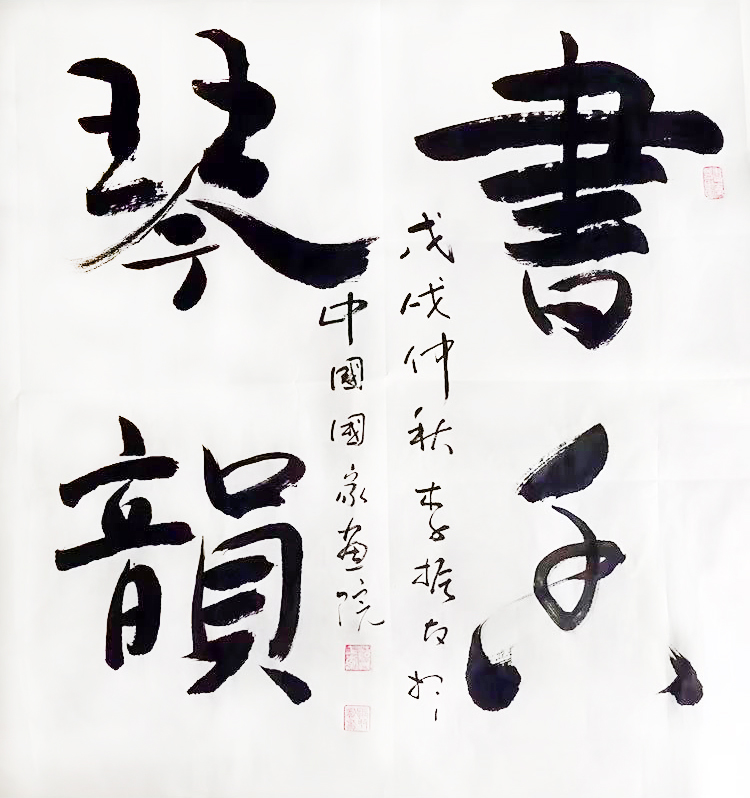 書香
琴韻
戊戌仲秋李於
中國國家畫院